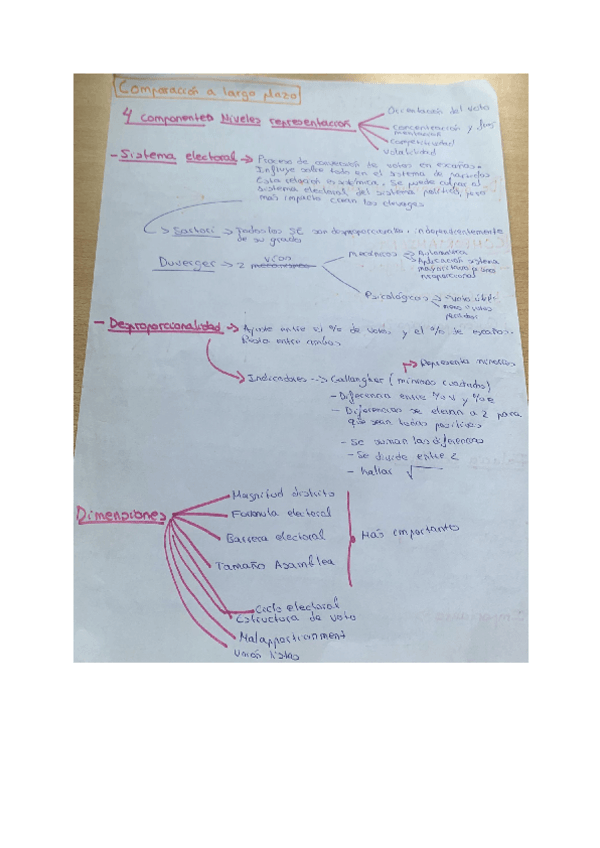 Comparación a largo plazo
4 componentes Niveles representación
Orientación del voto
concentración y
competitividad
volatilidad
- Sistema electoral → Proceso de conversión de votos en escaños.
Influye sobre todo en el sistema de partidos
Esta relación es sistémica. Se puede culpar al
sistema electoral del sistema político, pero
más impacto crean los cleavages
Sartori → Todos los SE son desproporcionales, independientemente
de su grado
Duverger → 2
mecánicos → Automática
Aplicación sistema
mayoritario o
proporcional
Psicológicos → "voto útil"
votos
perdidos
- Desproporcionalidad → Ajuste entre el % de votos y el % de escaños.
Resta entre ambos
→ Representa
→ Indicadores → Gallangher (mínimos cuadrados)
- Diferencia entre %V y %E
- Diferencias se elevan a 2 para
que sean todas positivas
- Se suman las diferencias
- Se divide entre 2
- hallar √
Dimensiones
Magnitud distrito
Formula electoral
Barrera electoral
Tamaño Asamblea
Más importantes
Ciclo electoral
Estructura de voto
Malapportionment
listas